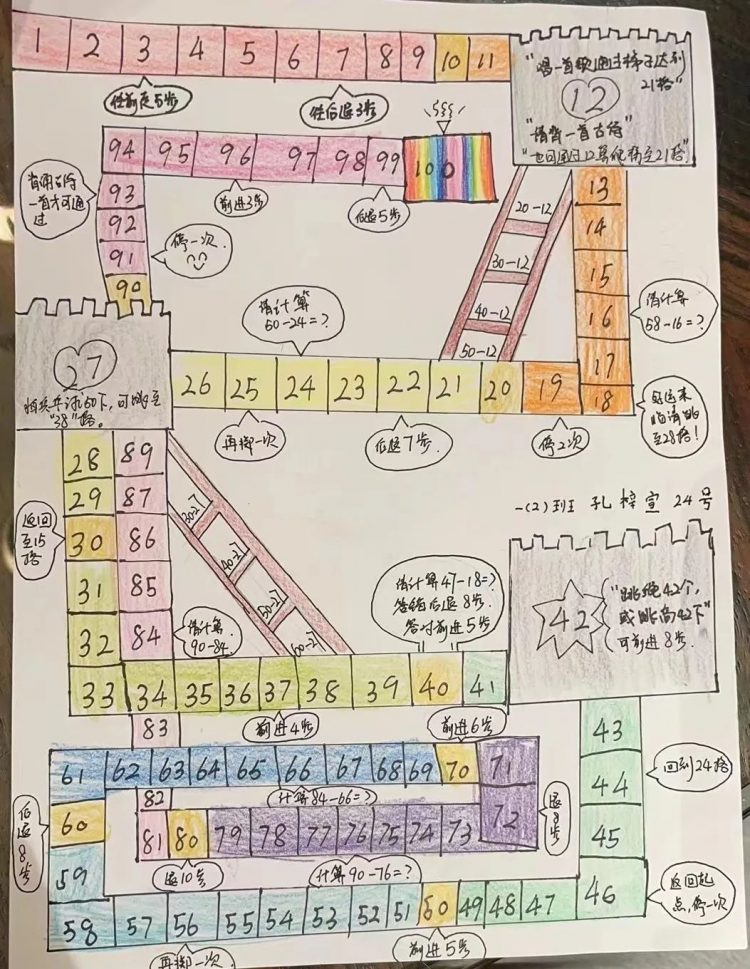 1 2 3 4 5 6 7 8 9 10 11
往前走5步
往后退3步
"唱一首歌,通过梯子达到
21格"
12
"请背一首古诗
94 95 96 97 98 99 100
前进3步
后退5步
背诵古诗
一首方可通
过
93
92
91
90
停一次.
20-12
30-12
40-12
50-12
13
14
15
16
17
18
请计算
58-16=?
请计算
60-24=?
27
"38"格。
26 25 24 23 22 21 20 19
再掷一次
后退7步.
停2次
好运来
临请跳
至28格!
28 89
29 87
30 86
31 85
32 84
返回
至15
格
30-27
40-27
50-27
60-27
请计算
90-84
一(2)班 孔梓宣 24号
请计算47-18=?
答错后退8步.
答对前进5步
42
"跳绳42个,
或跳高42下"
可前进8步.
33 34 35 36 37 38 39 40 41
前进4步
前进6步
83
43
44
45
46
回到24格
返回起
点,停一次
61 62 63 64 65 66 67 68 69 70 71
计算84-66=?
82
60
59
后退8步
81 80 79 78 77 76 75 74 73 72
退8步
退10步
计算90-76=?
58 57 56 55 54 53 52 51 50 49 48 47
再掷一次
前进5步